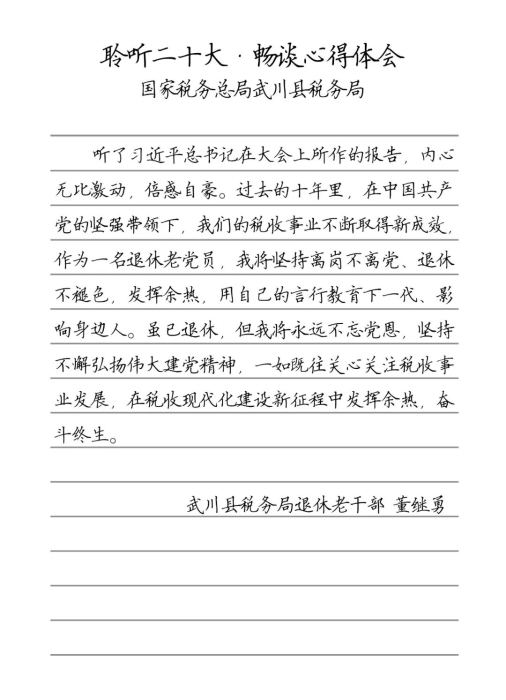 聆听二十大·畅谈心得体会
国家税务总局武川县税务局
听了习近平总书记在大会上所作的报告，内心
无比激动，倍感自豪。过去的十年里，在中国共产
党的坚强带领下，我们的税收事业不断取得新成效，
作为一名退休老党员，我将坚持离岗不离党、退休
不褪色，发挥余热，用自己的言行教育下一代、影
响身边人。虽已退休，但我将永远不忘党恩，坚持
不懈弘扬伟大建党精神，一如既往关心关注税收事
业发展，在税收现代化建设新征程中发挥余热，奋
斗终生。
武川县税务局退休老干部 董继勇